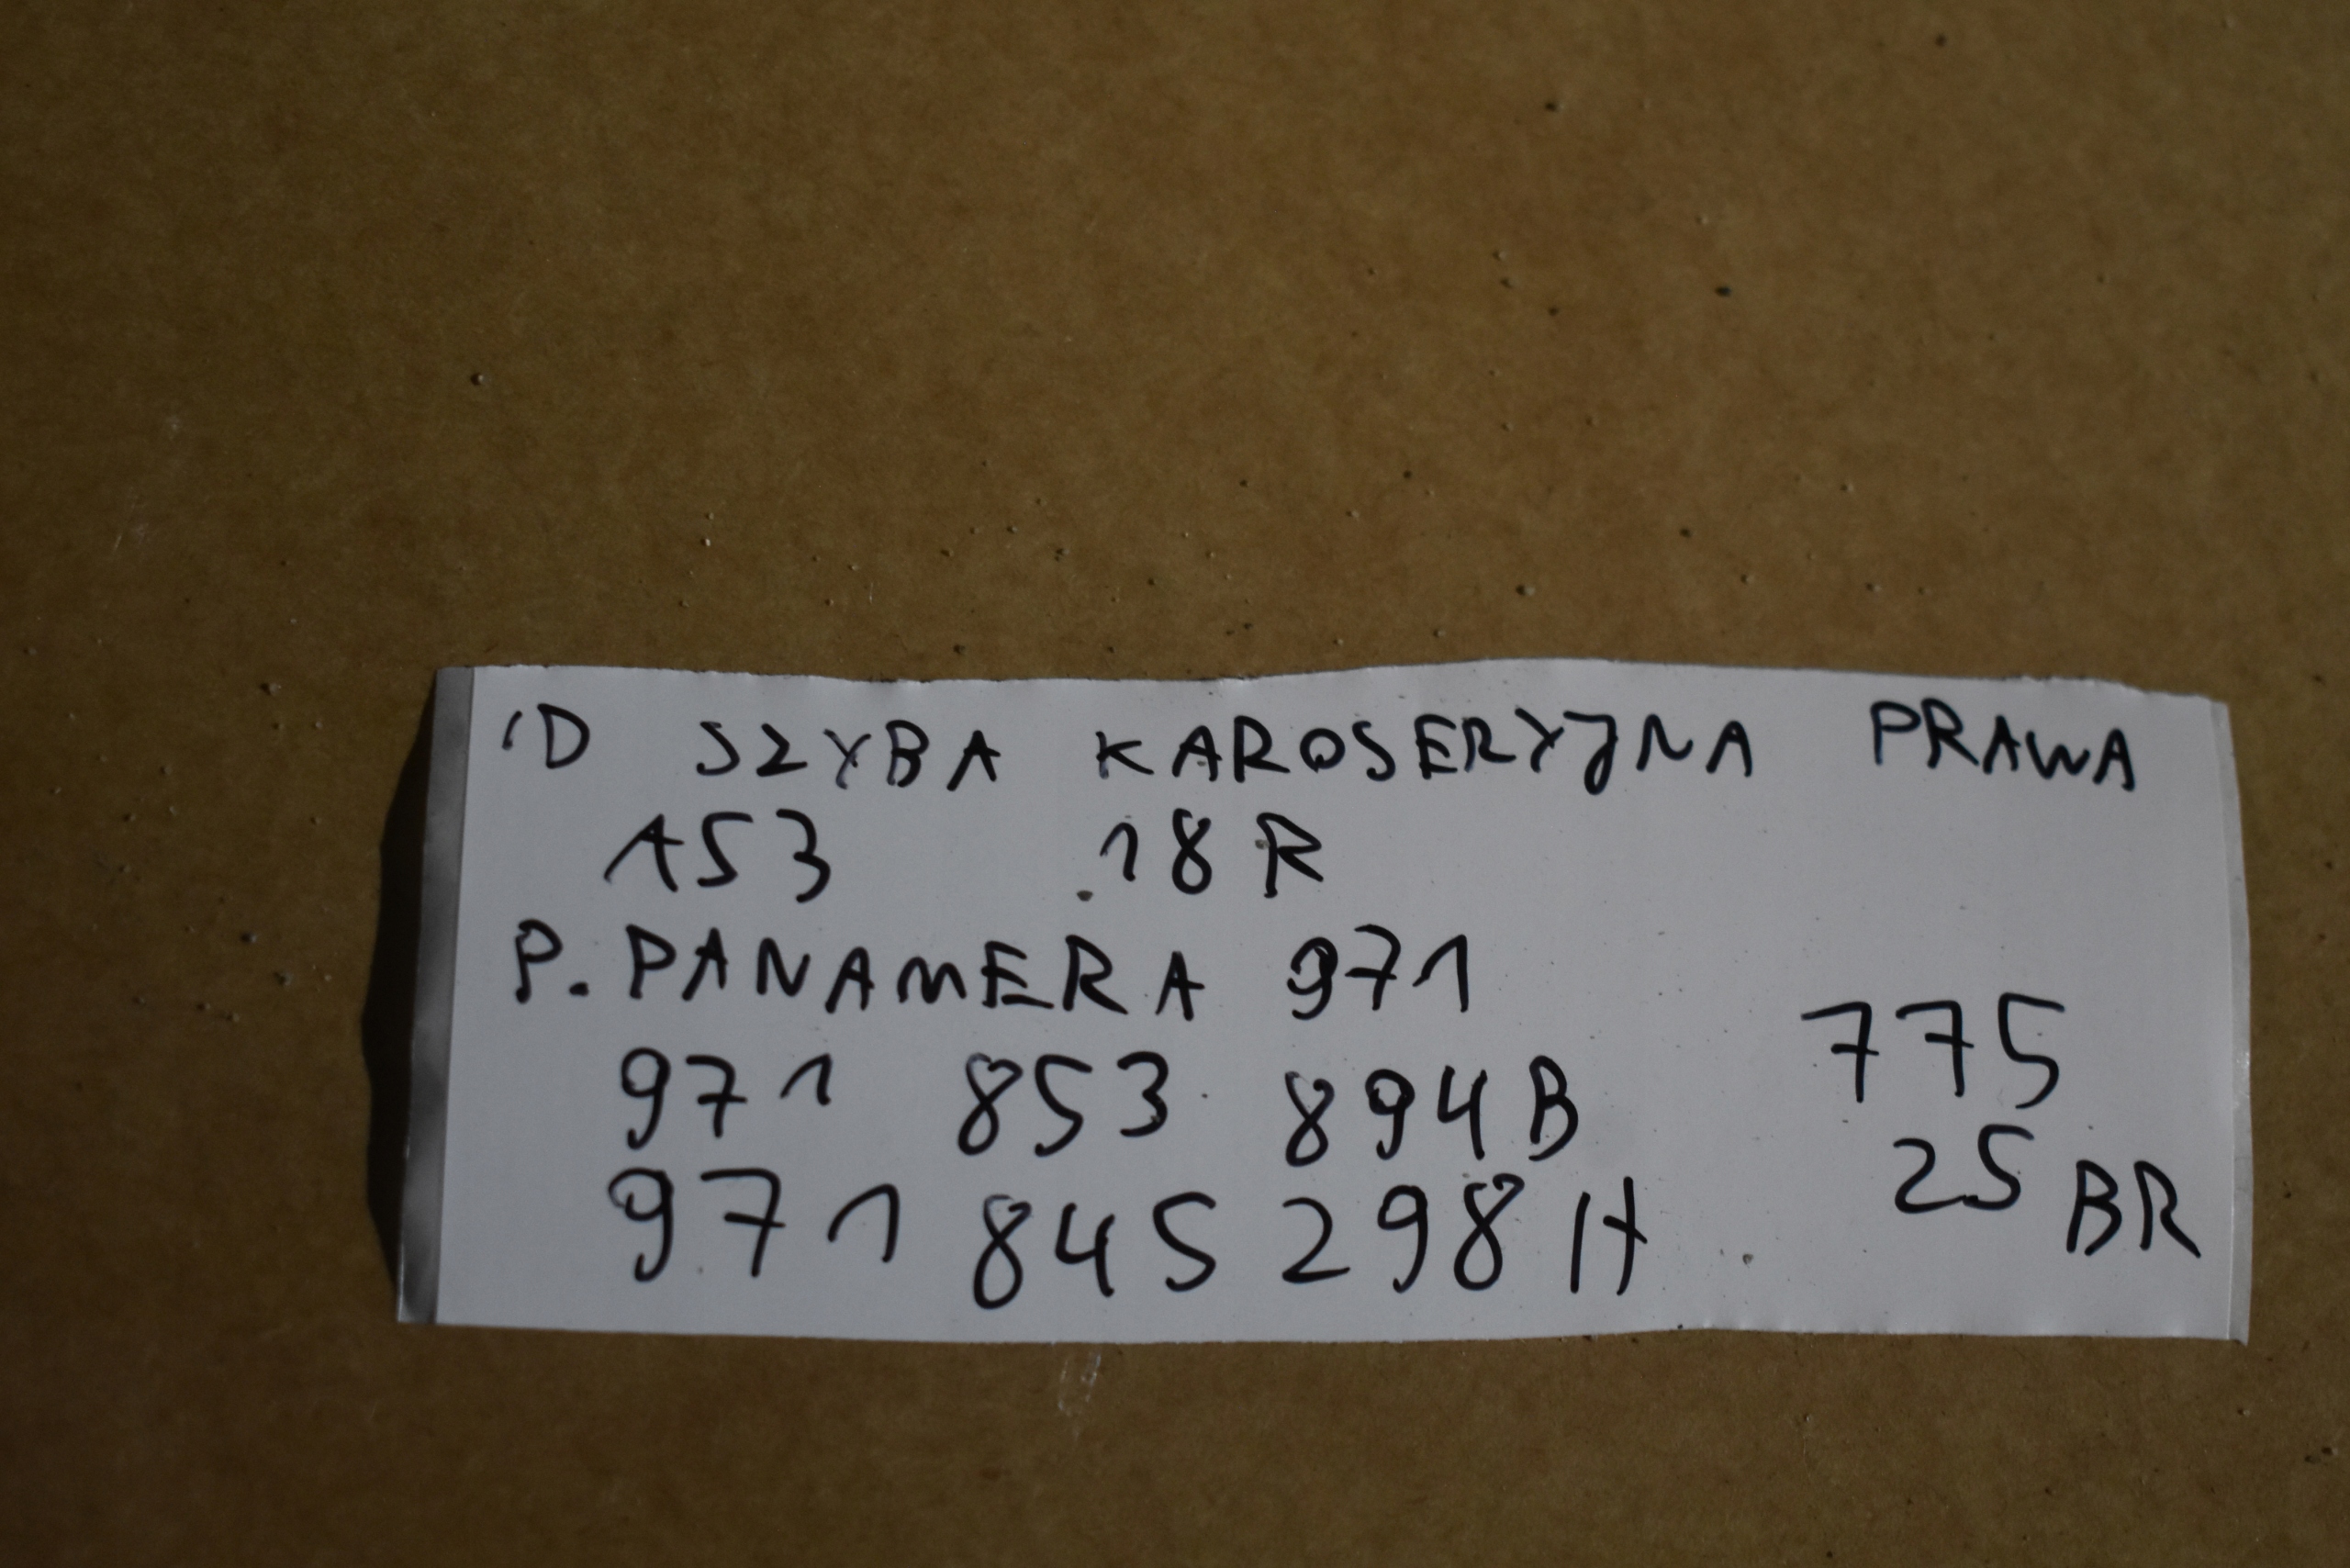 ID SZYBA KAROSERYJNA PRAWA
AS3 18R
P. PANAMERA 971
971 853 894B
971 845 298 H
775
25 BR